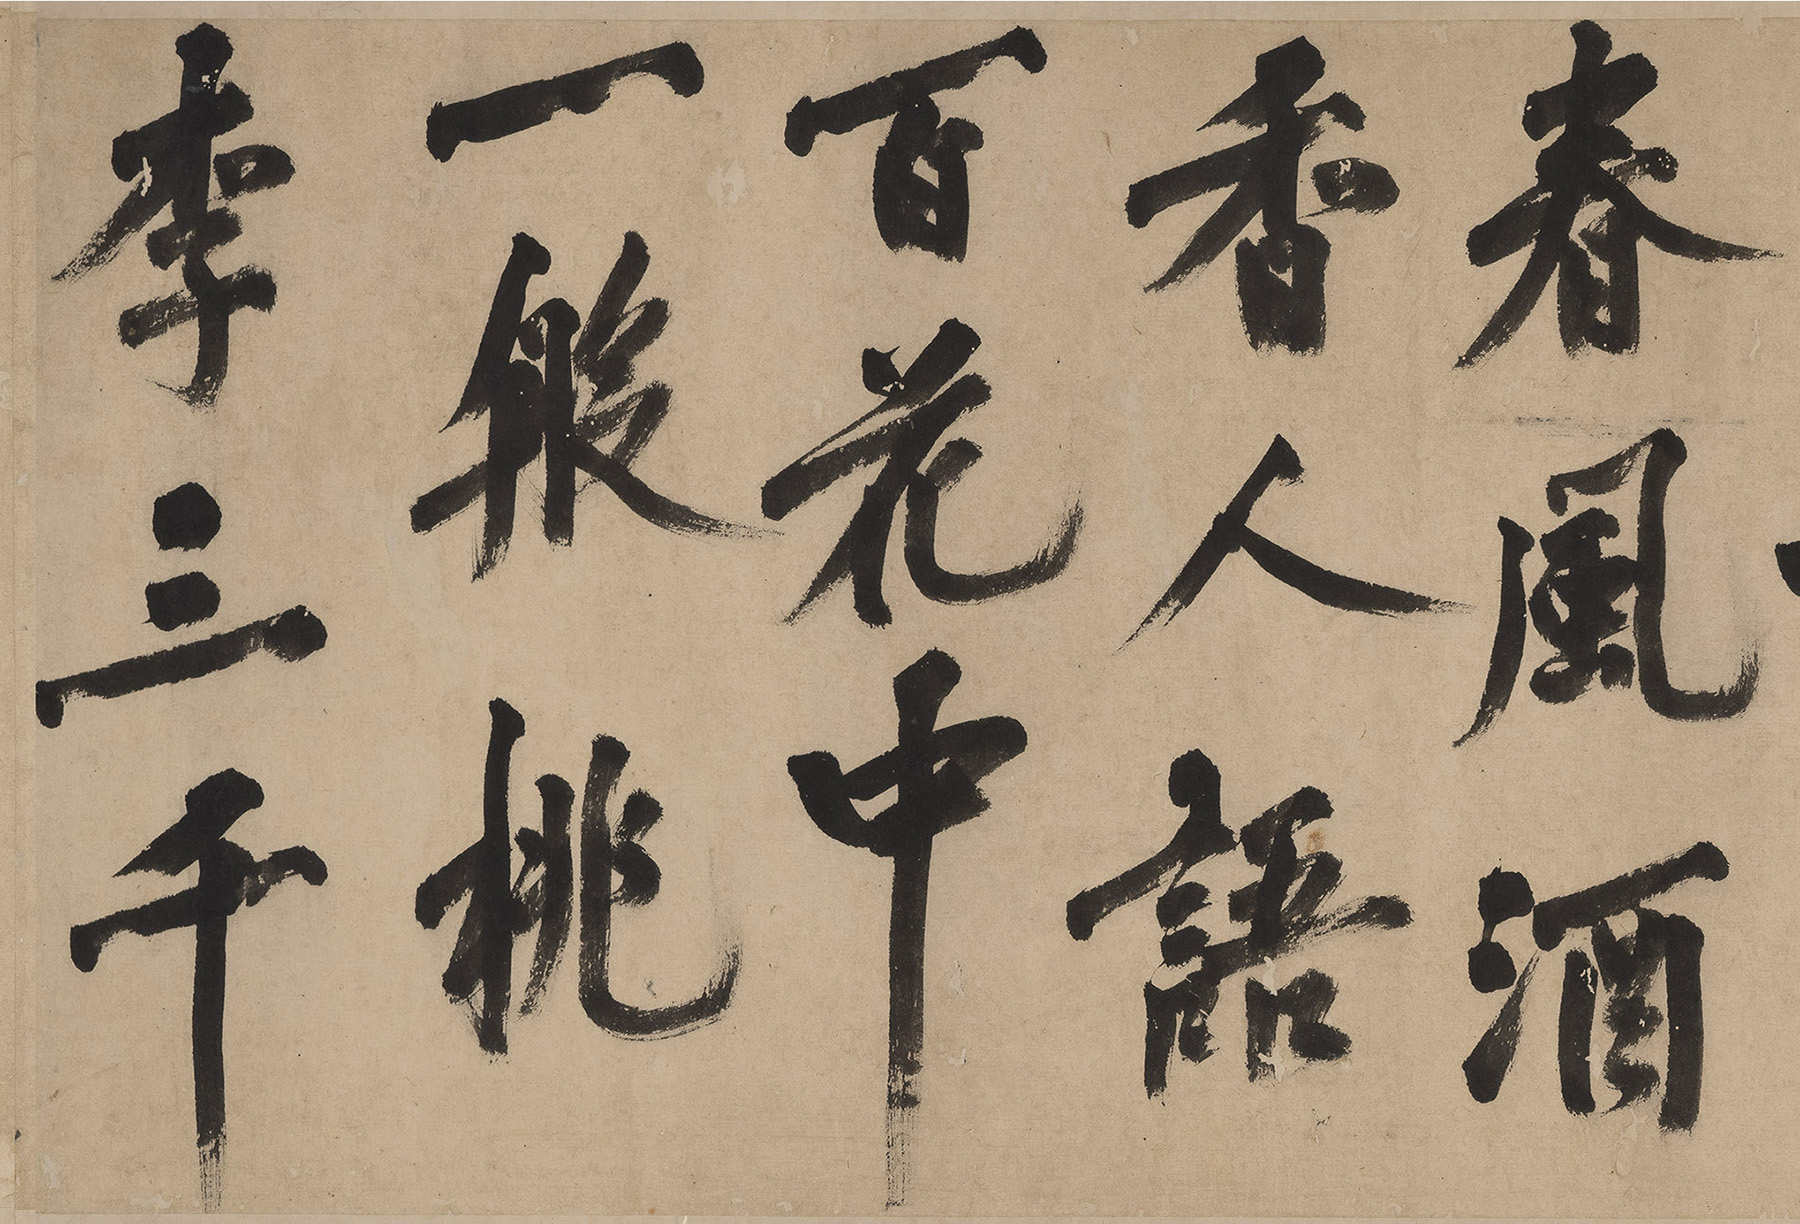 春風酒
香人語
百花中
一般桃
李三千